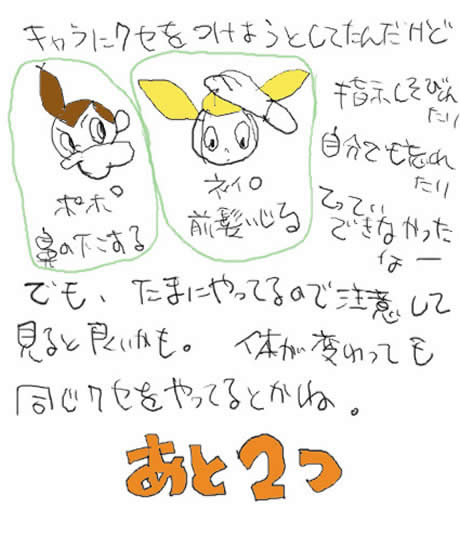 キャラにクセをつけようとしてたんだけど
ポポ
鼻の下こする
ネイロ
前髪いじる
指示しそびれ
たり
自分でも忘れ
たり
てってい
できなかった
なー
でも、たまにやってるので注意して
見ると良いかも。 体が変わっても
同じクセをやってるとかね。
あと2つ